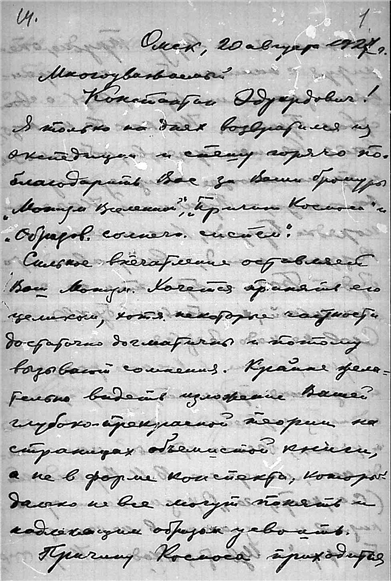 1.
Омск, 20 августа 192 г.
Многоуважаемый
Константин Эдуардович!
Я только на днях возвратился из
экспедиции и спешу горячо по-
благодарить Вас за Ваши брошюры
„Монизм Вселенной", „Причина Космоса" и
„Образов. солнечн. систем".
Сильное впечатление оставляет
Ваш Монизм. Хочется принять его
целиком, хотя некоторые частности
достаточно догматичны и потому
вызывают сомнения. Крайне жела-
тельно видеть изложение Вашей
глубоко-прекрасной теории на
страницах объемистой книги,
а не в форме конспекта, который
далеко не все могут понять и
надлежащим образом усвоить.
Причину Космоса приходится